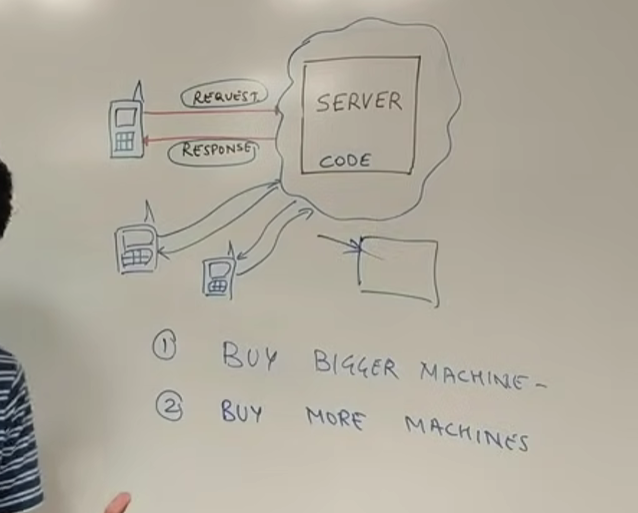 REQUEST
SERVER
RESPONSE
CODE
① BUY BIGGER MACHINE-
② BUY MORE MACHINES